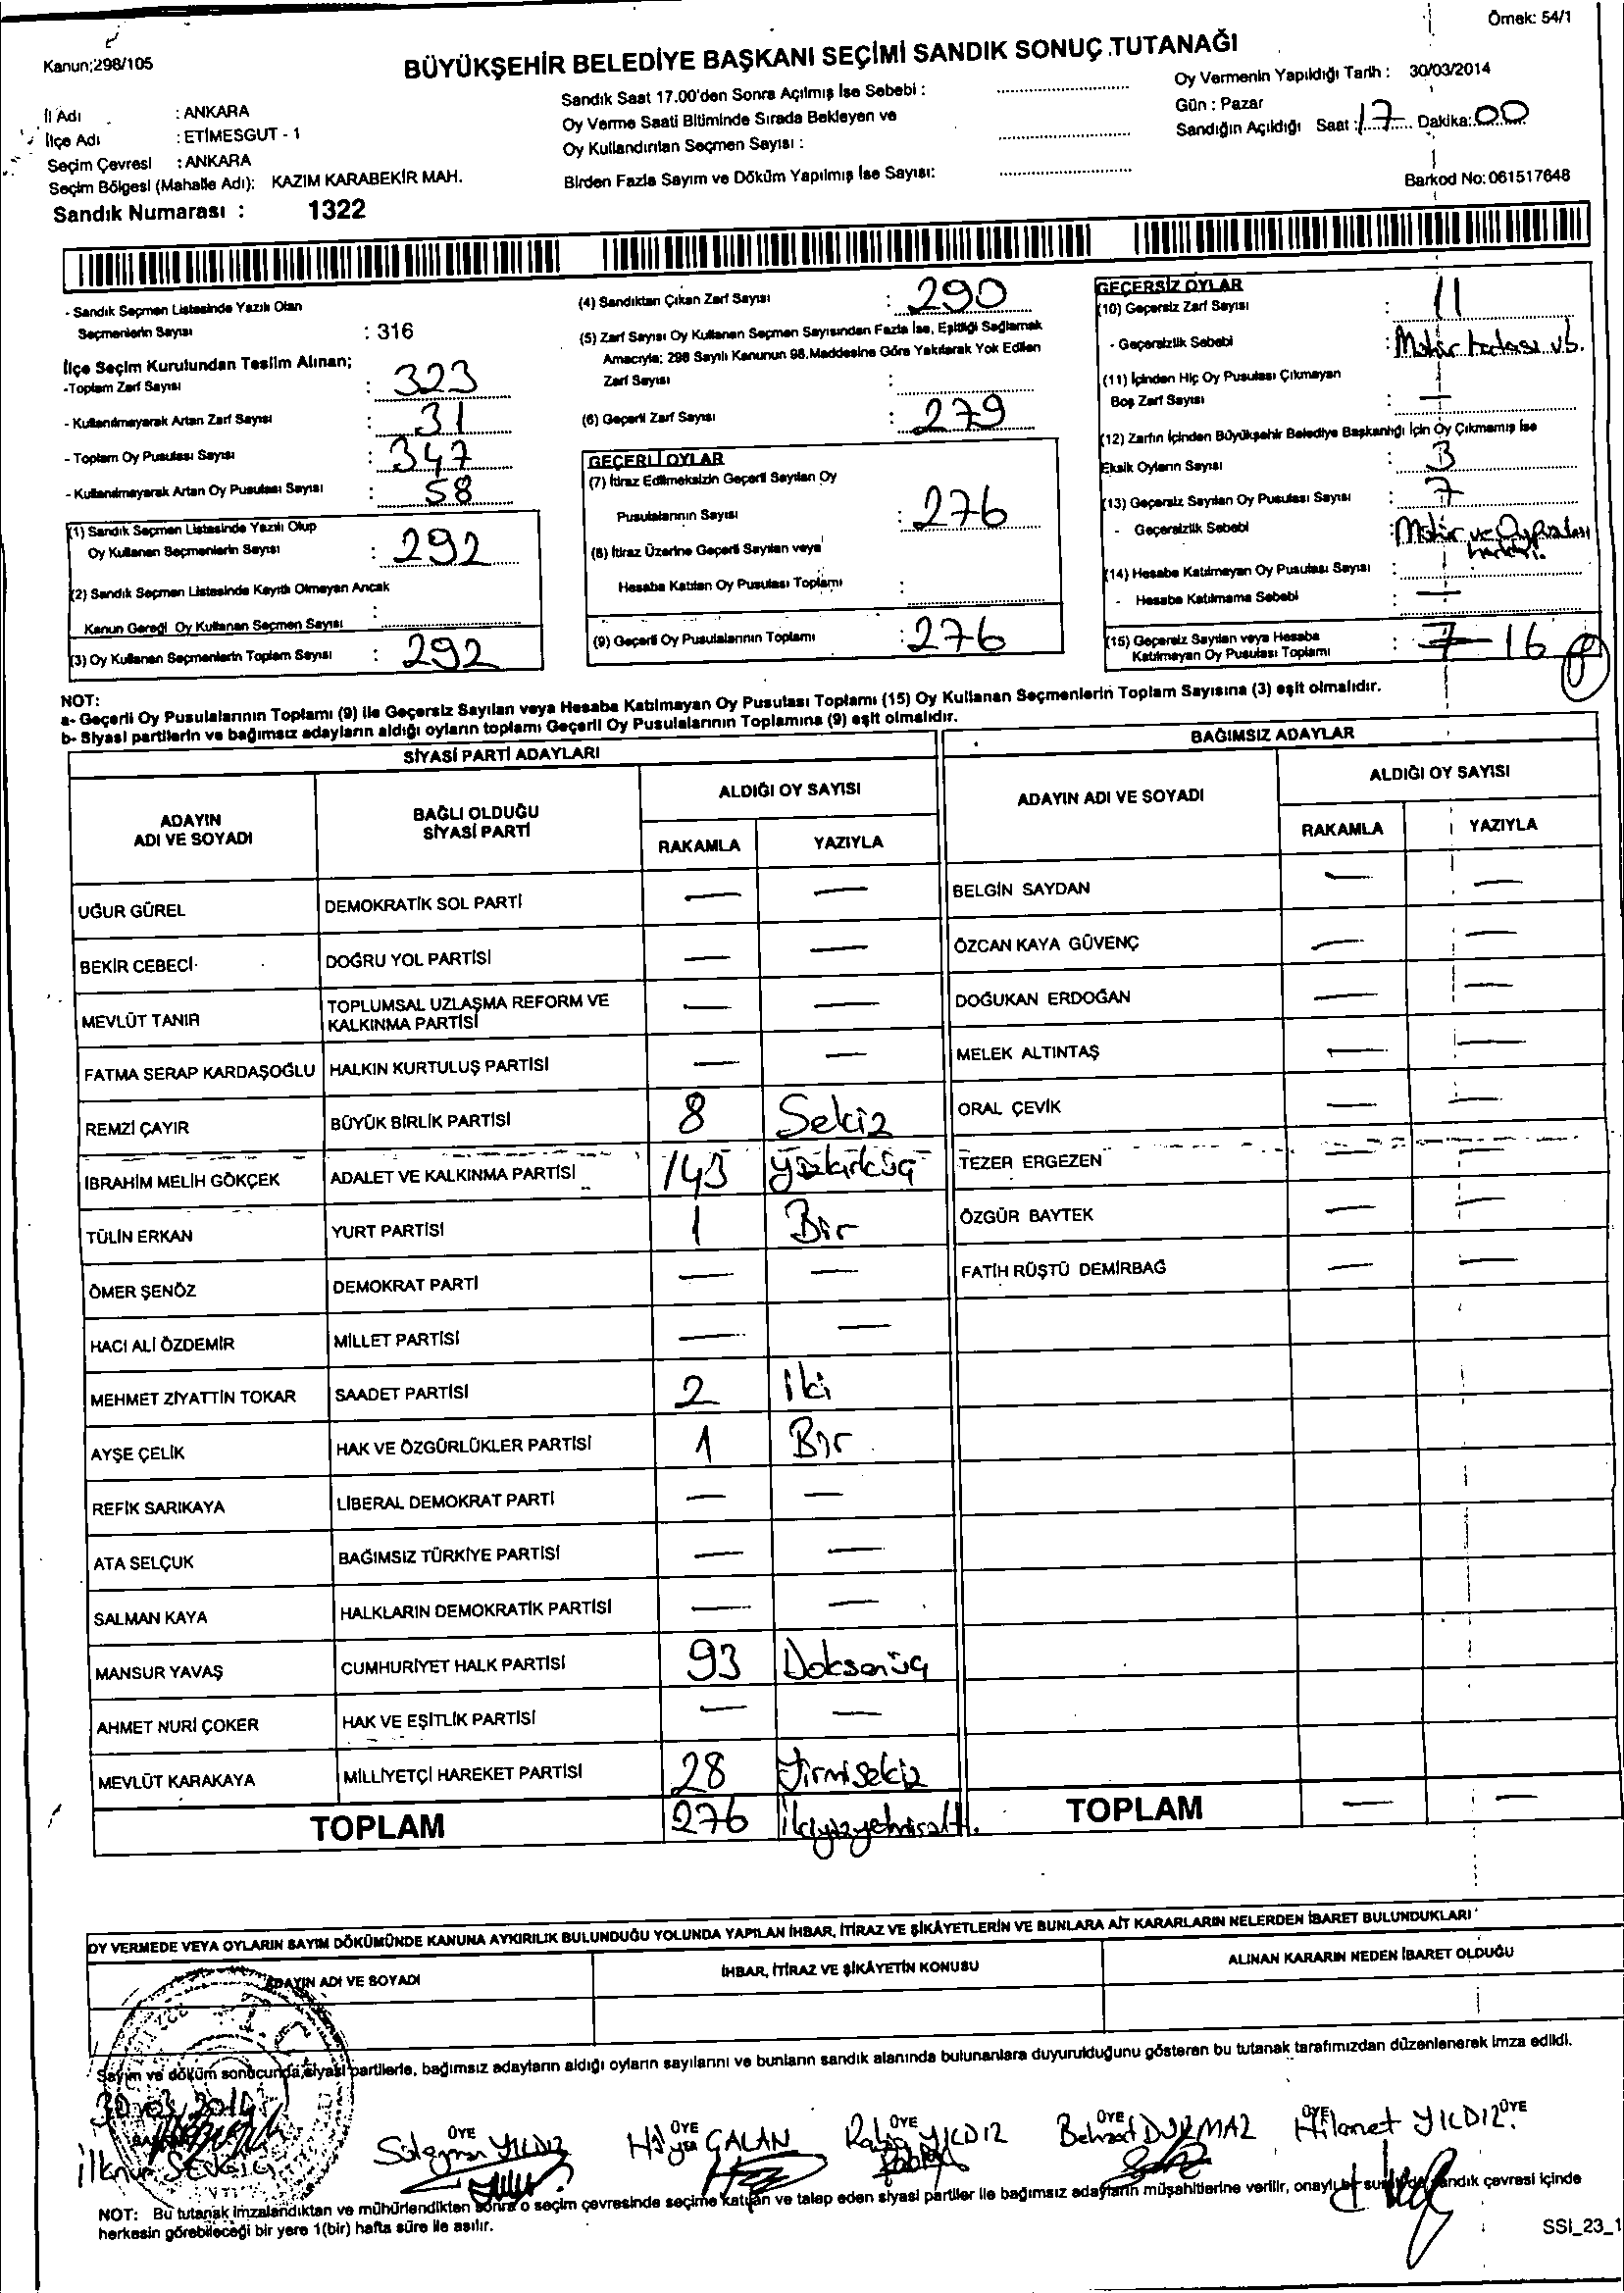 Örnek: 54/1
Kanun;298/105
BÜYÜKŞEHİR BELEDİYE BAŞKANI SEÇİMİ SANDIK SONUÇ TUTANAĞI
İl Adı : ANKARA
İlçe Adı : ETİMESGUT - 1
Seçim Çevresi : ANKARA
Seçim Bölgesi (Mahalle Adı): KAZIM KARABEKİR MAH.
Sandık Numarası : 1322
Sandık Saat 17.00'den Sonra Açılmış İse Sebebi :
Oy Verme Saati Bitiminde Sırada Bekleyen ve
Oy Kullandırılan Seçmen Sayısı :
Birden Fazla Sayım ve Döküm Yapılmış İse Sayısı:
Oy Vermenin Yapıldığı Tarih : 30/03/2014
Gün : Pazar
Sandığın Açıldığı Saat : 17 Dakika: 00
Barkod No: 061517648
- Sandık Seçmen Listesinde Yazılı Olan
Seçmenlerin Sayısı : 316
İlçe Seçim Kurulundan Teslim Alınan;
-Toplam Zarf Sayısı : 323
- Kullanılmayarak Artan Zarf Sayısı : 31
- Toplam Oy Pusulası Sayısı : 347
- Kullanılmayarak Artan Oy Pusulası Sayısı : 58
(1) Sandık Seçmen Listesinde Yazılı Olup
Oy Kullanan Seçmenlerin Sayısı : 292
(2) Sandık Seçmen Listesinde Kayıtlı Olmayan Ancak
Kanun Gereği Oy Kullanan Seçmen Sayısı :
(3) Oy Kullanan Seçmenlerin Toplam Sayısı : 292
(4) Sandıktan Çıkan Zarf Sayısı : 290
(5) Zarf Sayısı Oy Kullanan Seçmen Sayısından Fazla İse, Eşitliği Sağlamak
Amacıyla; 298 Sayılı Kanunun 98.Maddesine Göre Yakılarak Yok Edilen
Zarf Sayısı :
(6) Geçerli Zarf Sayısı : 279
GEÇERLİ OYLAR
(7) İtiraz Edilmeksizin Geçerli Sayılan Oy
Pusulalarının Sayısı : 276
(8) İtiraz Üzerine Geçerli Sayılan veya
Hesaba Katılan Oy Pusulası Toplamı :
(9) Geçerli Oy Pusulalarının Toplamı : 276
GEÇERSİZ OYLAR
(10) Geçersiz Zarf Sayısı : 11
- Geçersizlik Sebebi : Mühür hatası vb.
(11) İçinden Hiç Oy Pusulası Çıkmayan
Boş Zarf Sayısı : —
(12) Zarfın İçinden Büyükşehir Belediye Başkanlığı İçin Oy Çıkmamış İse
Eksik Oyların Sayısı : 3
(13) Geçersiz Sayılan Oy Pusulası Sayısı : 7
- Geçersizlik Sebebi : Mühür ve Oy pusulası
(14) Hesaba Katılmayan Oy Pusulası Sayısı :
- Hesaba Katılmama Sebebi : —
(15) Geçersiz Sayılan veya Hesaba
Katılmayan Oy Pusulası Toplamı : 7 16
NOT:
a- Geçerli Oy Pusulalarının Toplamı (9) ile Geçersiz Sayılan veya Hesaba Katılmayan Oy Pusulası Toplamı (15) Oy Kullanan Seçmenlerin Toplam Sayısına (3) eşit olmalıdır.
b- Siyasi partilerin ve bağımsız adayların aldığı oyların toplamı Geçerli Oy Pusulalarının Toplamına (9) eşit olmalıdır.
SİYASİ PARTİ ADAYLARI
ADAYIN
ADI VE SOYADI
BAĞLI OLDUĞU
SİYASİ PARTİ
ALDIĞI OY SAYISI
RAKAMLA YAZIYLA
UĞUR GÜREL DEMOKRATİK SOL PARTİ — —
BEKİR CEBECİ DOĞRU YOL PARTİSİ — —
MEVLÜT TANIR TOPLUMSAL UZLAŞMA REFORM VE
KALKINMA PARTİSİ — —
FATMA SERAP KARDAŞOĞLU HALKIN KURTULUŞ PARTİSİ — —
REMZİ ÇAYIR BÜYÜK BİRLİK PARTİSİ 8 Sekiz
İBRAHİM MELİH GÖKÇEK ADALET VE KALKINMA PARTİSİ 143 yüzkırküç
TÜLİN ERKAN YURT PARTİSİ 1 Bir
ÖMER ŞENÖZ DEMOKRAT PARTİ — —
HACI ALİ ÖZDEMİR MİLLET PARTİSİ — —
MEHMET ZİYATTİN TOKAR SAADET PARTİSİ 2 iki
AYŞE ÇELİK HAK VE ÖZGÜRLÜKLER PARTİSİ 1 Bir
REFİK SARIKAYA LİBERAL DEMOKRAT PARTİ — —
ATA SELÇUK BAĞIMSIZ TÜRKİYE PARTİSİ — —
SALMAN KAYA HALKLARIN DEMOKRATİK PARTİSİ — —
MANSUR YAVAŞ CUMHURİYET HALK PARTİSİ 93 Doksanüç
AHMET NURİ ÇOKER HAK VE EŞİTLİK PARTİSİ — —
MEVLÜT KARAKAYA MİLLİYETÇİ HAREKET PARTİSİ 28 Yirmisekiz
TOPLAM 276 ikiyüzyetmişaltı.
BAĞIMSIZ ADAYLAR
ADAYIN ADI VE SOYADI
ALDIĞI OY SAYISI
RAKAMLA YAZIYLA
BELGİN SAYDAN — —
ÖZCAN KAYA GÜVENÇ — —
DOĞUKAN ERDOĞAN — —
MELEK ALTINTAŞ — —
ORAL ÇEVİK — —
TEZER ERGEZEN — —
ÖZGÜR BAYTEK — —
FATİH RÜŞTÜ DEMİRBAĞ — —
TOPLAM — —
OY VERMEDE VEYA OYLARIN SAYIM DÖKÜMÜNDE KANUNA AYKIRILIK BULUNDUĞU YOLUNDA YAPILAN İHBAR, İTİRAZ VE ŞİKÂYETLERİN VE BUNLARA AİT KARARLARIN NELERDEN İBARET BULUNDUKLARI
ADAYIN ADI VE SOYADI
İHBAR, İTİRAZ VE ŞİKÂYETİN KONUSU
ALINAN KARARIN NEDEN İBARET OLDUĞU
Sayım ve döküm sonucunda,siyasi partilerle, bağımsız adayların aldığı oyların sayılarını ve bunların sandık alanında bulunanlara duyurulduğunu gösteren bu tutanak tarafımızdan düzenlenerek imza edildi.
30.03.2014
ÜYE ÜYE ÜYE ÜYE ÜYE ÜYE
Süleyman YILDIZ
GALAN
Rabia YILDIZ
Behzat DURMAZ
Hikmet YILDIZ
İlknur
NOT: Bu tutanak imzalandıktan ve mühürlendikten sonra o seçim çevresinde seçime katılan ve talep eden siyasi partiler ile bağımsız adayların müşahitlerine verilir, onaylı bir sureti de sandık çevresi içinde
herkesin görebileceği bir yere 1(bir) hafta süre ile asılır.
SSI_23_1